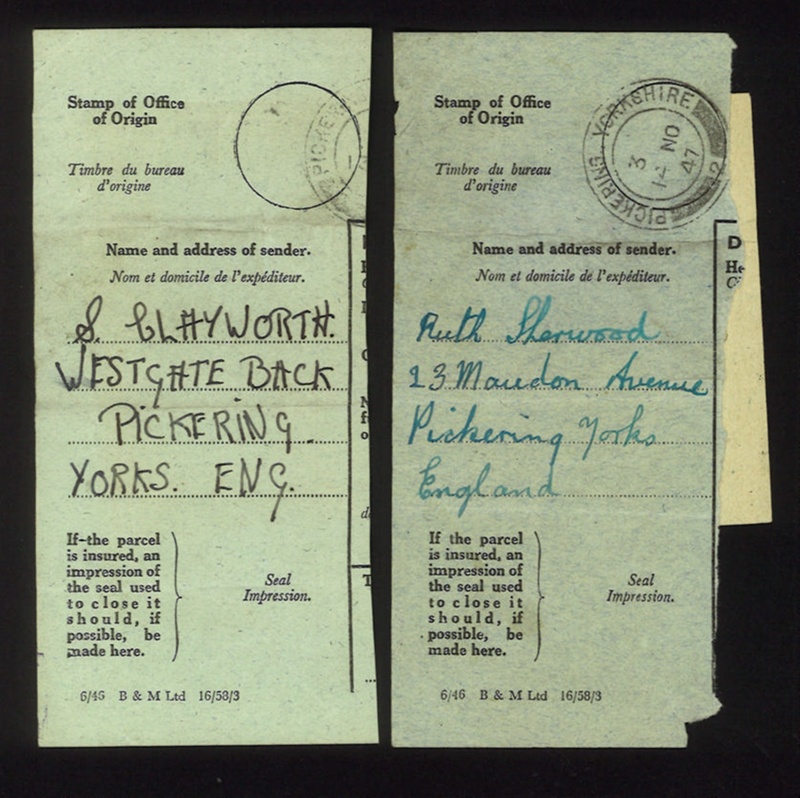 Stamp of Office
of Origin
Timbre du bureau
d'origine
PICKE
Name and address of sender.
Nom et domicile de l'expéditeur.
S. CLAYWORTH.
WESTGATE BACK
PICKERING.
YORKS. ENG.
If the parcel
is insured, an
impression of
the seal used
to close it
should, if
possible, be
made here.
Seal
Impression.
6/46 B & M Ltd 16/58/3
Stamp of Office
of Origin
Timbre du bureau
d'origine
PICKERING YORKSHIRE
3
14 NO
47
PICKERING
Name and address of sender.
Nom et domicile de l'expéditeur.
Ruth Sherwood
23 Maudon Avenue
Pickering Yorks
England
If the parcel
is insured, an
impression of
the seal used
to close it
should, if
possible, be
made here.
Seal
Impression.
6/46 B & M Ltd 16/58/3
D
He